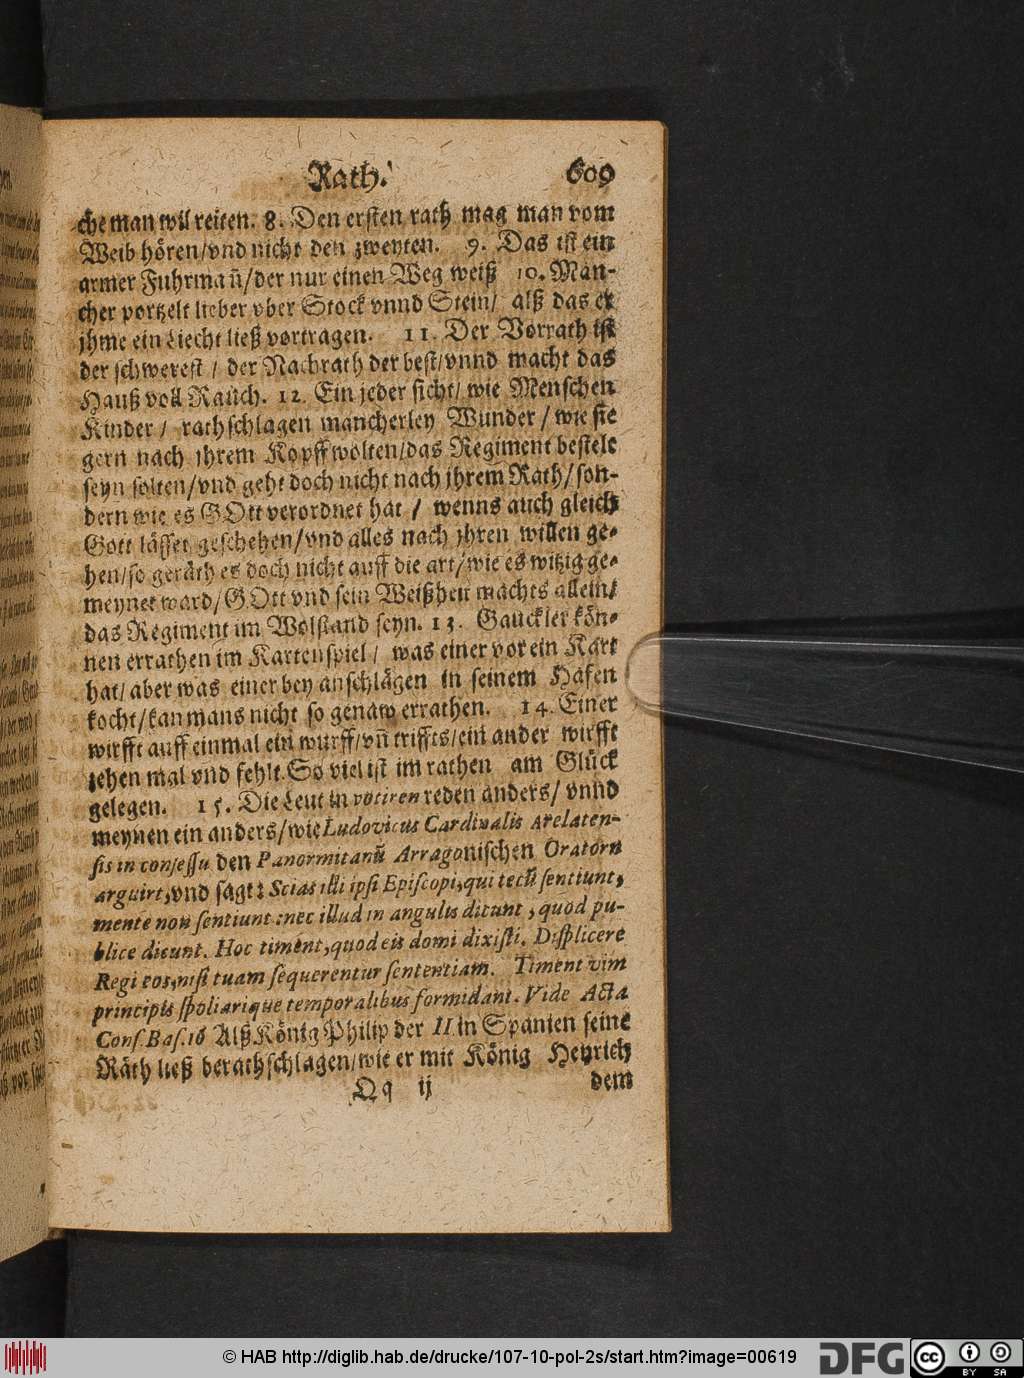 Rath. 609
che man wil reiten. 8. Den ersten rath mag man vom
Weib hören/vnd nicht den zweyten. 9. Das ist ein
armer Fuhrmañ/der nur einen Weg weiß 10. Man-
cher portzelt lieber vber Stock vnnd Stein/ alß das er
jhme ein Liecht ließ vortragen. 11. Der Vorrath ist
der schwerest / der Nachrath der best/vnnd macht das
Hauß voll Rauch. 12. Ein jeder sicht/ wie Menschen
Kinder / rathschlagen mancherley Wunder / wie sie
gern nach jhrem Kopff wolten/das Regiment bestelt
seyn solten/vnd geht doch nicht nach jhrem Rath/son-
dern wie es GOtt verordnet hat / wenns auch gleich
Gott lässet geschehen/vnd alles nach jhren willen ge-
hen/so geräth es doch nicht auff die art/wie es witzig ge-
meynet ward/GOtt vnd sein Weißheit machts allein/
das Regiment im Wolstand seyn. 13. Gauckler kön-
nen errathen im Kartenspiel / was einer vor ein Kart
hat/ aber was einer bey anschlägen in seinem Hafen
kocht/kan mans nicht so genaw errathen. 14. Einer
wirfft auff einmal ein wurff/vñ triffts/ein ander wirfft
zehen mal vnd fehlt. So viel ist im rathen am Glück
gelegen. 15. Die Leut in votiren reden anders/ vnnd
meynen ein anders/wie Ludovicus Cardinalis Arelaten-
sis in consessu den Panormitanū Arragonischen Oratorn
arguirt, vnd sagt: Scias illi ipsi Episcopi, qui tecū sentiunt,
mente non sentiunt: nec illud in angulis dicunt, quod pu-
blice dicunt. Hoc timent, quod eis domi dixisti. Displicere
Regi eos, nisi tuam sequerentur sententiam. Timent vim
principis spoliarique temporalibus formidant. Vide Acta
Cons. Bas. 16 Alß König Philip der II in Spanien seine
Räth ließ berathschlagen/wie er mit König Heyrich
Qq ij dem
© HAB http://diglib.hab.de/drucke/107-10-pol-2s/start.htm?image=00619
DFG
cc BY SA